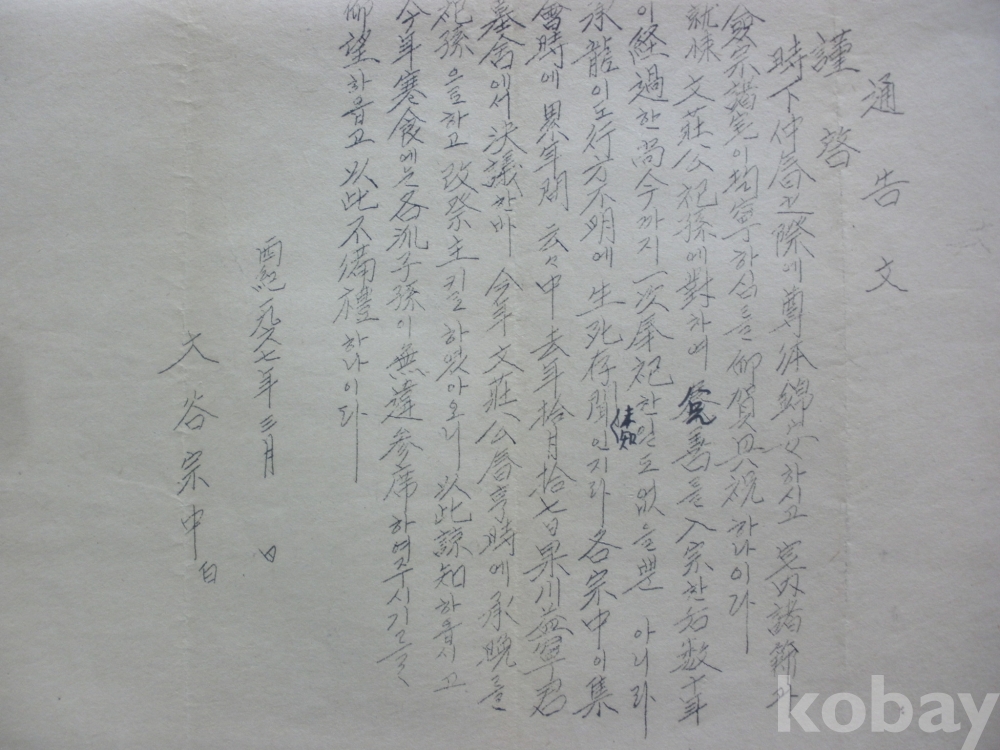 通告文
謹啓
時下仲春之際에 尊体錦安하시고 宅內諸節과
僉宗諸宅이 均寧하심를 仰賀且祝하나이다
就悚 文莊公祀孫에 對하여 善를 入宗한 后 數十年
이 経過한 尙今까지 一次奉祀한 일도 없을뿐 아니라
承龍이도 行方不明에 生死存 未知인지라 各宗中이 集
會時에 累年間 云々中 去年拾月拾七日 果川益寧君
墓舍에서 決議한바 今年文莊公春享時에 承晩를
祀孫을하고 改祭主키로 하였아오니 以此諒知하읍시고
今年寒食에는 各派子孫이 無違參席하여주시기를
仰望하읍고 以此不備禮하나이다
西紀一九六七年三月 日
大谷宗中 白
kobay